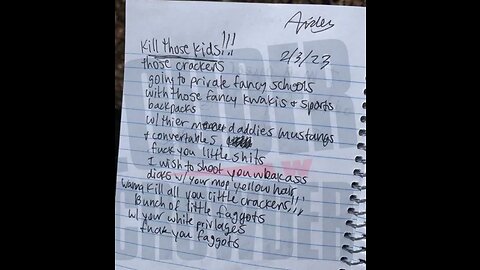 Aiden
2/3/23
Kill those kids!!!
those crackers
going to private fancy schools
with those fancy kwakis + sports
backpacks
w/ thier daddies mustangs
+ convertables
fuck you little shits
I wish to shoot you weakass
dicks w/ your mop yellow hair
wanna kill all you little crackers!!!
Bunch of little faggots
w/ your white privlages
fuck you faggots
LOUDER
CROWDER